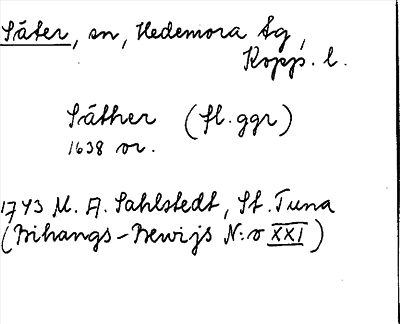 Säter, sn, Hedemora tg,
Kopp. l.
Säther (fl. ggr)
1638 or.
1743 M. A. Sahlstedt, St. Tuna
(Bihangs-Bewijs N:o XXI)